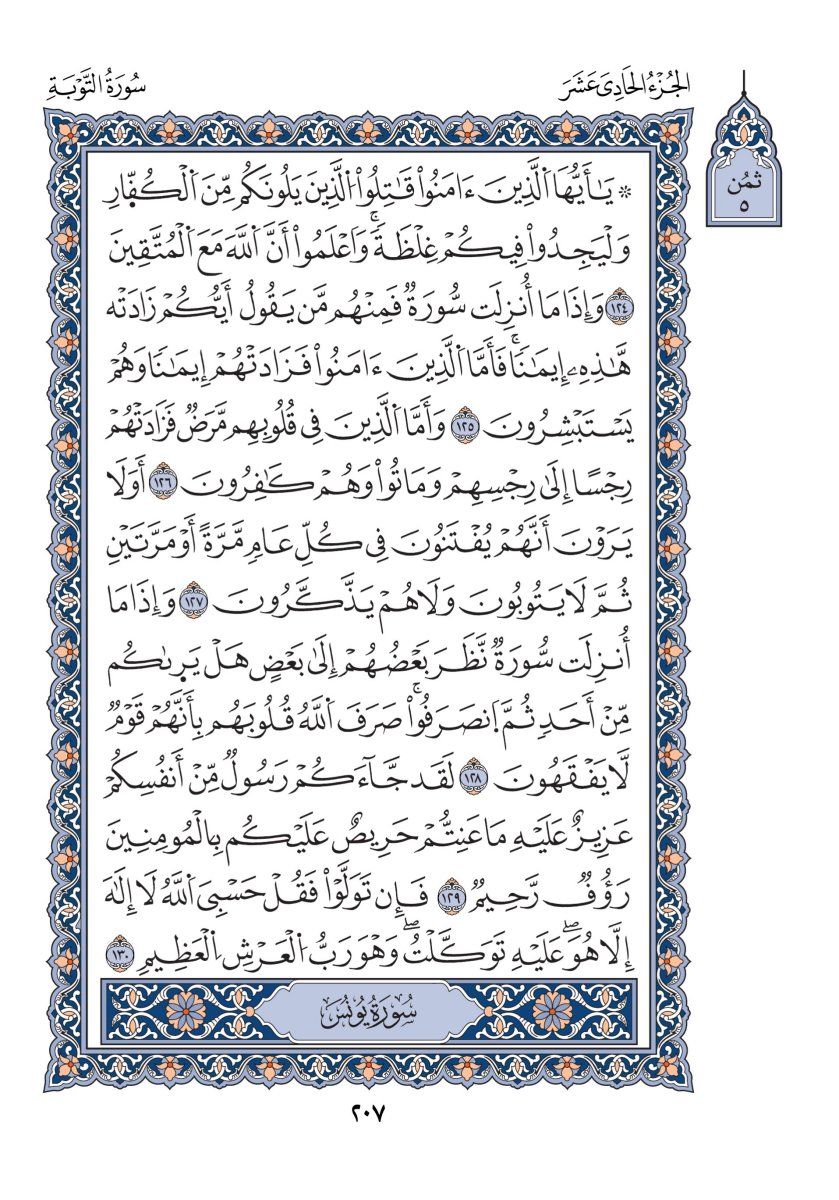 سُورَةُ التَّوْبَةِ
الجُزْءُ الحَادِي عَشَرَ
ثمُن
٥
۞ يَٰأَيُّهَا اَ۬لذِينَ ءَامَنُواْ قَٰتِلُواْ اُ۬لذِينَ يَلُونَكُم مِّنَ اَ۬لْكُفّ۪ارِ
وَلْيَجِدُواْ فِيكُمْ غِلْظَةٗۖ وَاعْلَمُواْ أَنَّ اَ۬للَّهَ مَعَ اَ۬لْمُتَّقِينَ
١٢٤ وَإِذَا مَا أُنزِلَت سُّورَةٞ فَمِنْهُم مَّن يَقُولُ أَيُّكُمْ زَادَتْه
هَّٰذِهِۦ إِيمَٰناٗۖ فَأَمَّا اَ۬لذِينَ ءَامَنُواْ فَزَادَتْهُمْ إِيمَٰناٗ وَهُمْ
يَسْتَبْشِرُونَ ١٢٥ وَأَمَّا اَ۬لذِينَ فِي قُلُوبِهِم مَّرَضٞ فَزَادَتْهُمْ
رِجْساً إِلَىٰ رِجْسِهِمْ وَمَاتُواْ وَهُمْ كَٰفِرُونَ ١٢٦ أَوَلَا
يَرَوْنَ أَنَّهُمْ يُفْتَنُونَ فِي كُلِّ عَامٖ مَّرَّةً أَوْ مَرَّتَيْنِ
ثُمَّ لَا يَتُوبُونَ وَلَا هُمْ يَذَّكَّرُونَ ١٢٧ وَإِذَا مَا
أُنزِلَت سُّورَةٞ نَّظَرَ بَعْضُهُمْ إِلَىٰ بَعْضٍ هَلْ يَر۪ىٰكُم
مِّنْ أَحَدٖ ثُمَّ اَ۪نصَرَفُواْۖ صَرَفَ اَ۬للَّهُ قُلُوبَهُم بِأَنَّهُمْ قَوْمٞ
لَّا يَفْقَهُونَ ١٢٨ لَقَد جَّآءَكُمْ رَسُولٞ مِّنْ أَنفُسِكُمْ
عَزِيزٌ عَلَيْهِ مَا عَنِتُّمْ حَرِيصٌ عَلَيْكُم بِالْمُومِنِينَ
رَؤُفٞ رَّحِيمٞ ١٢٩ فَإِن تَوَلَّوْاْ فَقُلْ حَسْبِيَ اَ۬للَّهُ لَا إِلَٰهَ
إِلَّا هُوَۖ عَلَيْهِ تَوَكَّلْتُۖ وَهْوَ رَبُّ اُ۬لْعَرْشِ اِ۬لْعَظِيمِ ١٣٠
سُورَةُ يُونُسَ
٢٠٧